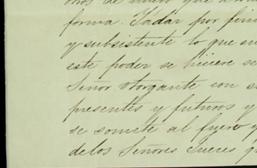 forma. Sadar por firm
y subsistente lo que en
este poder se hiciere se
Señor otorgante con su
presentes y futuros y
se somete al fuero y
delos Señores Jueces q